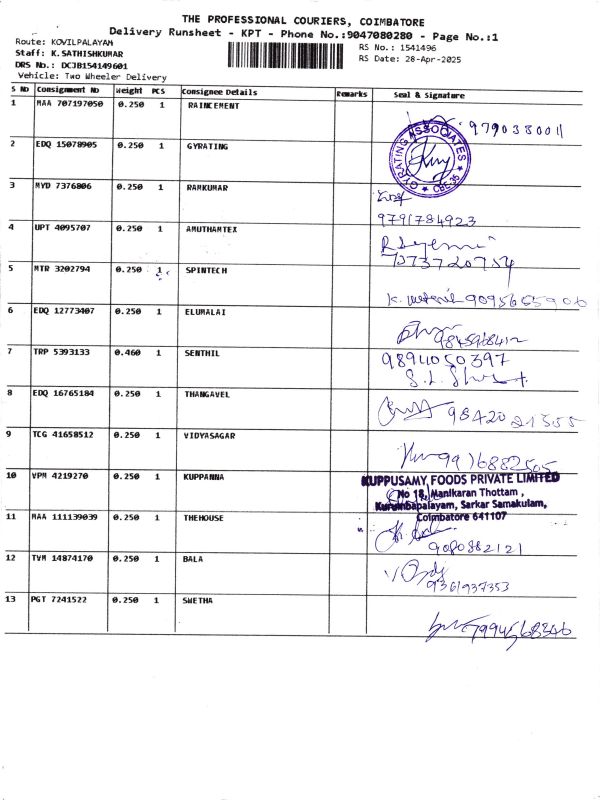 THE PROFESSIONAL COURIERS, COIMBATORE
Delivery Runsheet - KPT - Phone No.:9047080280 - Page No.:1
Route: KOVILPALAYAM
Staff: K.SATHISHKUMAR
DRS No.: DCJB154149601
Vehicle: Two Wheeler Delivery
RS No.: 1541496
RS Date: 28-Apr-2025
S No Consignment No Weight PCS Consignee Details Remarks Seal & Signature
1 MAA 707197050 0.250 1 RAINCEMENT
979038001
2 EDQ 15078905 0.250 1 GYRATING
GYRATING ASSOCIATES ★ CBE-35 ★
3 MYD 7376806 0.250 1 RAMKUMAR
9791784923
4 UPT 4095707 0.250 1 AMUTHAMTEX
7373720754
5 MTR 3202794 0.250 1 SPINTECH
9095665906
6 EDQ 12773407 0.250 1 ELUMALAI
9845968412
7 TRP 5393133 0.460 1 SENTHIL
9894050397
8 EDQ 16765184 0.250 1 THANGAVEL
9842021355
9 TCG 41658512 0.250 1 VIDYASAGAR
9916882505
10 VPM 4219270 0.250 1 KUPPANNA
KUPPUSAMY FOODS PRIVATE LIMITED
No 18, Manikaran Thottam,
Kurumbapalayam, Sarkar Samakulam,
Coimbatore 641107
11 MAA 111139039 0.250 1 THEHOUSE
9080882121
12 TVM 14874170 0.250 1 BALA
9361937353
13 PGT 7241522 0.250 1 SWETHA
7994568346